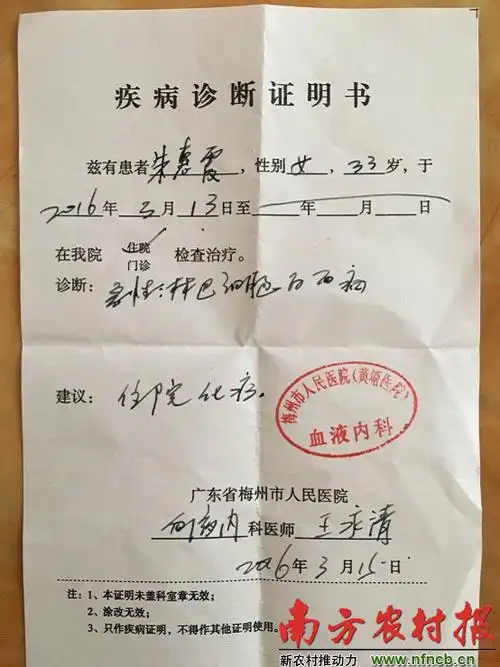 疾病诊断证明书
兹有患者朱惠霞，性别女，33岁，于
2016年3月13日至 年 月 日
在我院 住院 检查治疗。
门诊
诊断：急性淋巴细胞白血病
建议：住院化疗。
梅州市人民医院(黄塘医院)
血液内科
广东省梅州市人民医院
血液内科医师 王求清
2016年3月15日
注：1、本证明未盖科室章无效；
2、涂改无效；
3、只作疾病证明，不得作其他证明使用。
南方农村报
新农村推动力 www.nfncb.cn